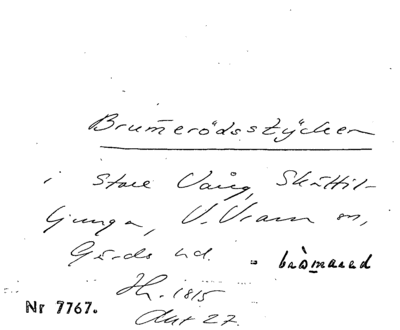 Brumerödsstycken
i Store Vång, Skättil-
ljunga, V. Vram sn,
Gärds hd. = bròmared
Hr. 1815
Akt 27.
Nr 7767.